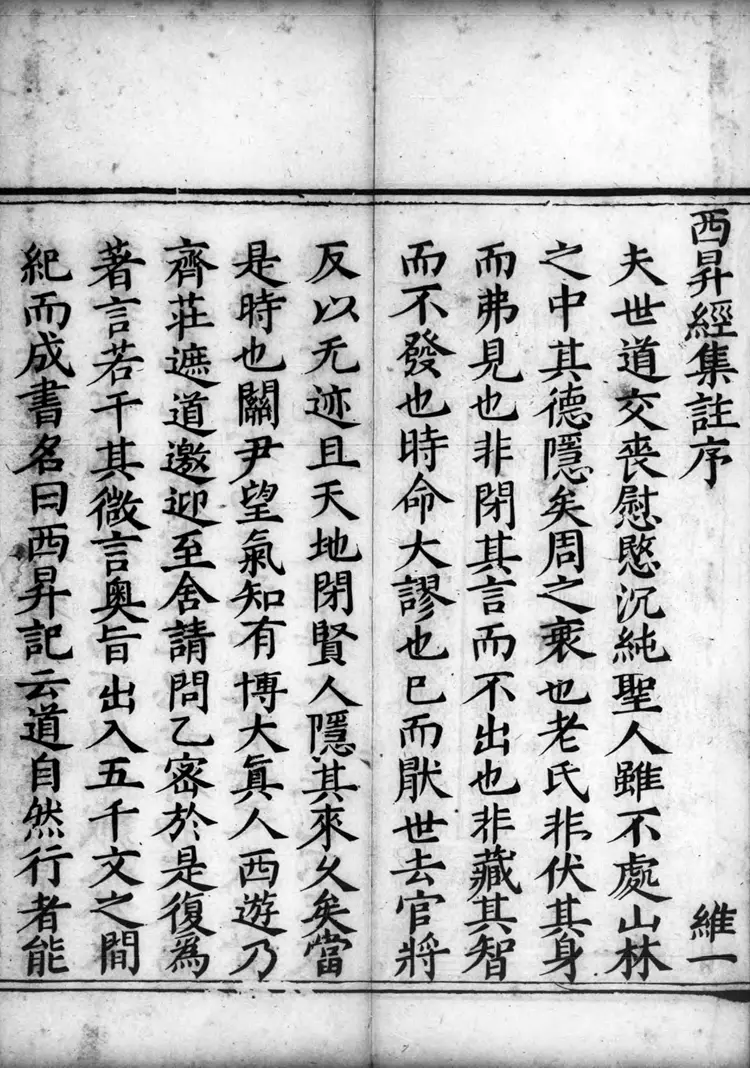 西昇經集註序 維一
夫世道交喪慰愍沉純聖人雖不處山林
之中其德隱矣周之衰也老氏非伏其身
而弗見也非閉其言而不出也非藏其智
而不發也時命大謬也巳而猒世去官將
反以无迹且天地閉賢人隱其來久矣當
是時也關尹望氣知有博大真人西遊乃
齊莊遮道邀迎至舍請問乙密於是復為
著言若干其微言奧旨出入五千文之間
紀而成書名曰西昇記云道自然行者能